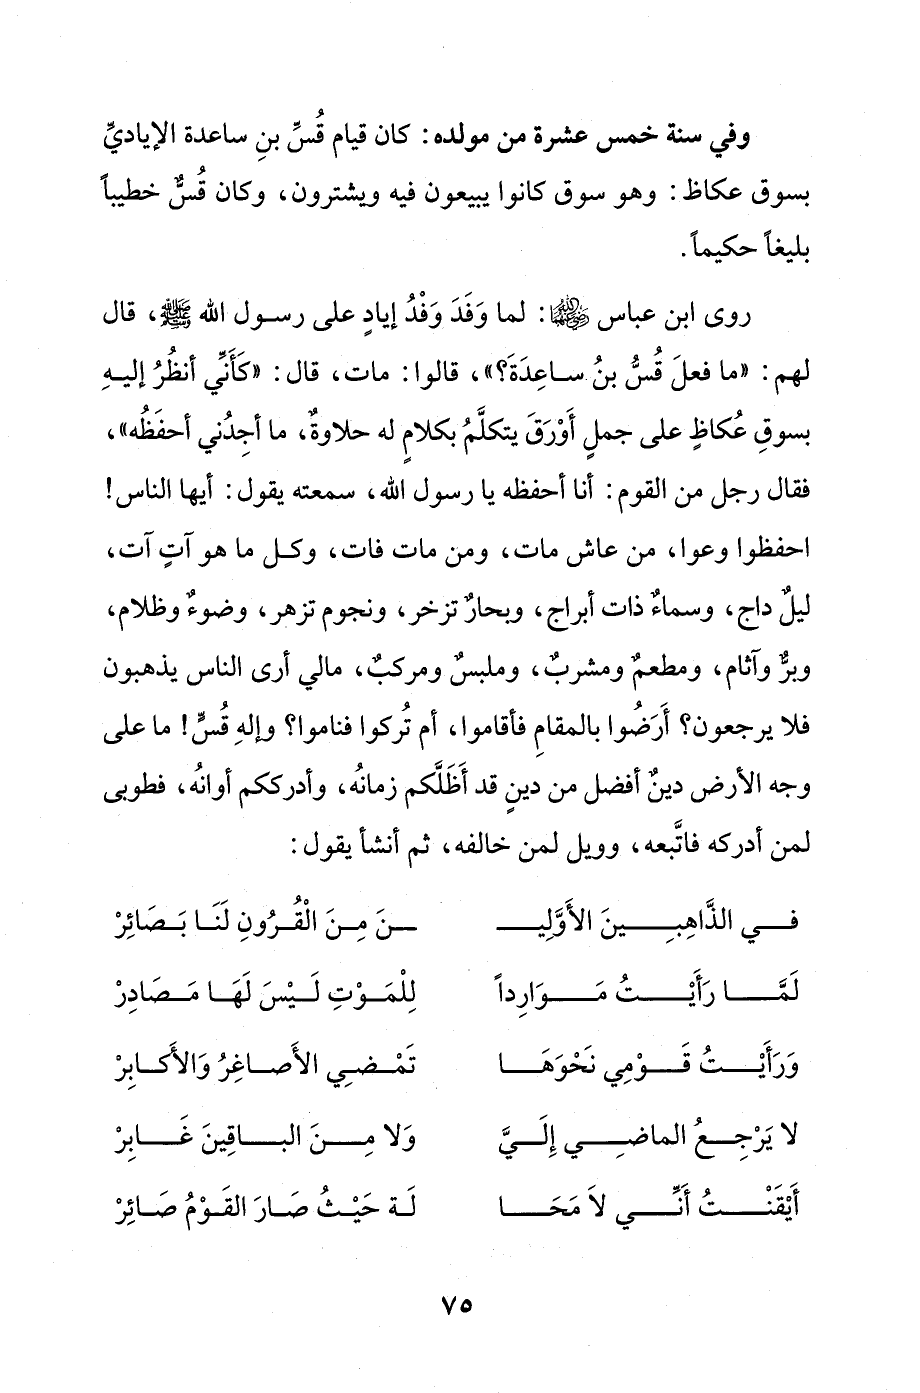 وفي سنة خمس عشرة من مولده: كان قيام قُسِّ بنِ ساعدة الإياديِّ
بسوق عكاظ: وهو سوق كانوا يبيعون فيه ويشترون، وكان قُسٌّ خطيباً
بليغاً حكيماً.
روى ابن عباس رضي الله عنهما: لما وَفَدَ وَفْدُ إيادٍ على رسول الله ﷺ، قال
لهم: «ما فعلَ قُسُّ بنُ ساعِدَةَ؟»، قالوا: مات، قال: «كَأَنِّي أنظُرُ إليهِ
بسوقِ عُكاظٍ على جملٍ أَوْرَقَ يتكلَّمُ بكلامٍ له حلاوةٌ، ما أجِدُني أحفَظُه»،
فقال رجل من القوم: أنا أحفظه يا رسول الله، سمعته يقول: أيها الناس!
احفظوا وعوا، من عاش مات، ومن مات فات، وكل ما هو آتٍ آت،
ليلٌ داج، وسماءٌ ذات أبراج، وبحارٌ تزخر، ونجوم تزهر، وضوءٌ وظلام،
وبرٌّ وآثام، ومطعمٌ ومشربٌ، وملبسٌ ومركبٌ، مالي أرى الناس يذهبون
فلا يرجعون؟ أَرَضُوا بالمقامِ فأقاموا، أم تُركوا فناموا؟ وإلهِ قُسٍّ! ما على
وجه الأرض دينٌ أفضل من دينٍ قد أَظَلَّكم زمانُه، وأدرككم أوانُه، فطوبى
لمن أدركه فاتَّبعه، وويل لمن خالفه، ثم أنشأ يقول:
فـي الذَّاهِبـيـنَ الأَوَّلِيـ ـنَ مِـنَ الْقُـرُونِ لَنَـا بَـصَائِرْ
لَمَّـا رَأَيْـتُ مَـوَارِداً لِلْمَـوْتِ لَـيْسَ لَهَـا مَـصَادِرْ
وَرَأَيْـتُ قَـوْمِي نَحْوَهَـا تَمْـضِي الأَصـاغِرُ وَالأَكـابِرْ
لا يَرْجِـعُ الماضِـي إِلَـيَّ وَلا مِـنَ البـاقِينَ غَـابِرْ
أَيْقَنْـتُ أَنِّـي لاَ مَحَـا لَـة حَيْـثُ صَـارَ القَـوْمُ صَـائِرْ
٧٥